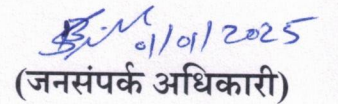 01/01/2025
(जनसंपर्क अधिकारी)